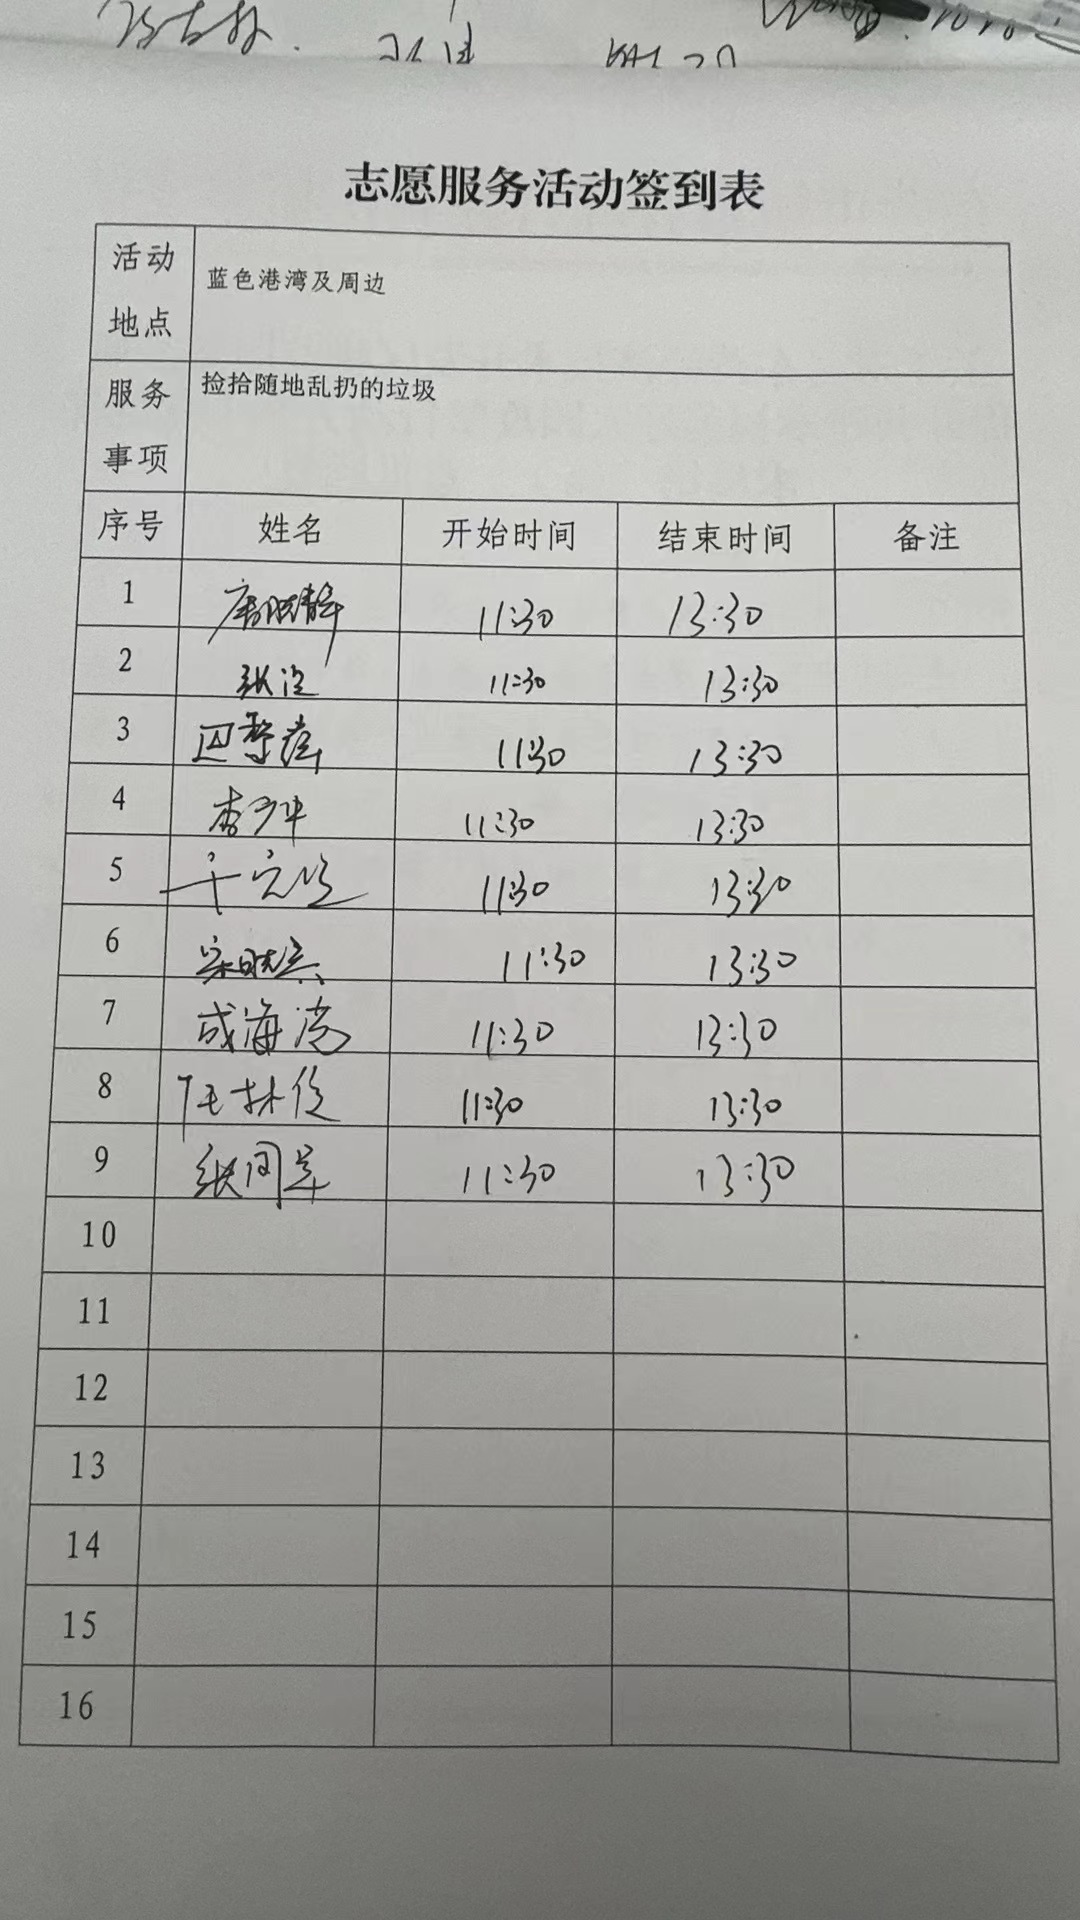 志愿服务活动签到表
活动地点 蓝色港湾及周边
服务事项 捡拾随地乱扔的垃圾
序号 姓名 开始时间 结束时间 备注
1 唐晓静 11:30 13:30
2 张 11:30 13:30
3 11:30 13:30
4 李少华 11:30 13:30
5 11:30 13:30
6 宋晓兵 11:30 13:30
7 成海涛 11:30 13:30
8 11:30 13:30
9 张同 11:30 13:30
10
11
12
13
14
15
16